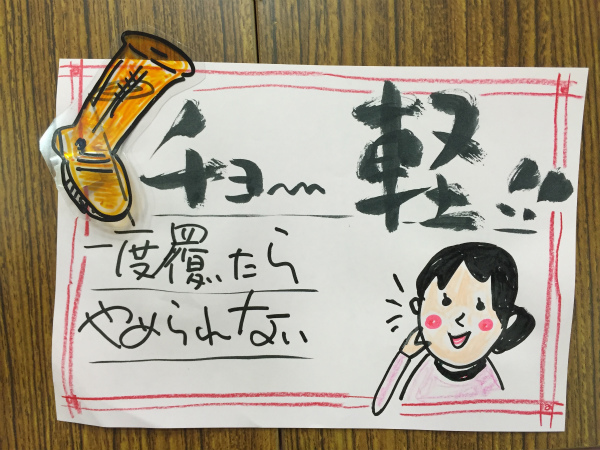 チョー〰軽!!
一度覆いたら
やめられない